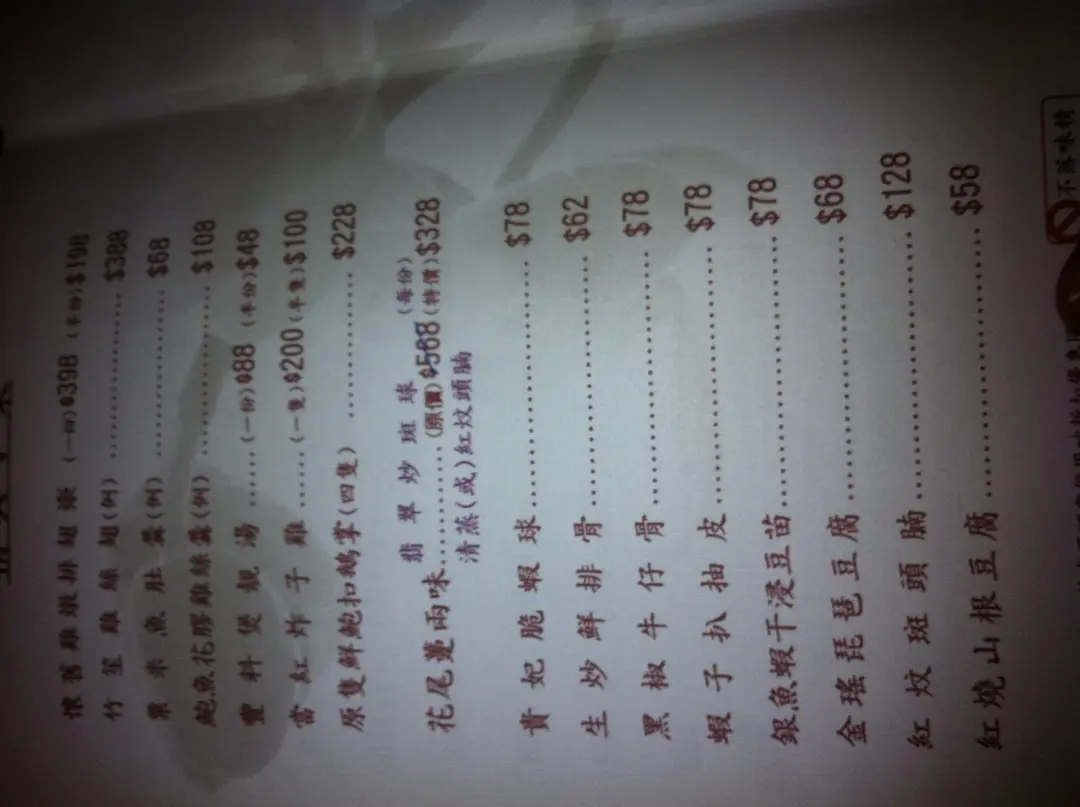 懷舊雞燉排翅 (一份)$398 (半份)$198
竹笙雞絲翅(例)............$388
粟米魚肚羹(例)............$68
鮑魚花膠雞絲羹(例)............$108
豐料煲靚湯......(一份)$88 (半份)$48
當紅炸子雞......(一隻)$200(半隻)$100
原隻鮮鮑扣鵝掌(四隻)............$228
翡翠炒斑球 (每份)
花尾躉兩味............(原價)$568(特價)$328
清蒸(或)紅炆頭腩
貴妃脆蝦球............$78
生炒鮮排骨............$62
黑椒牛仔骨............$78
蝦子扒柚皮............$78
銀魚蝦干浸豆苗............$78
金瑤琵琶豆腐............$68
紅炆斑頭腩............$128
紅燒山根豆腐............$58
不落味精